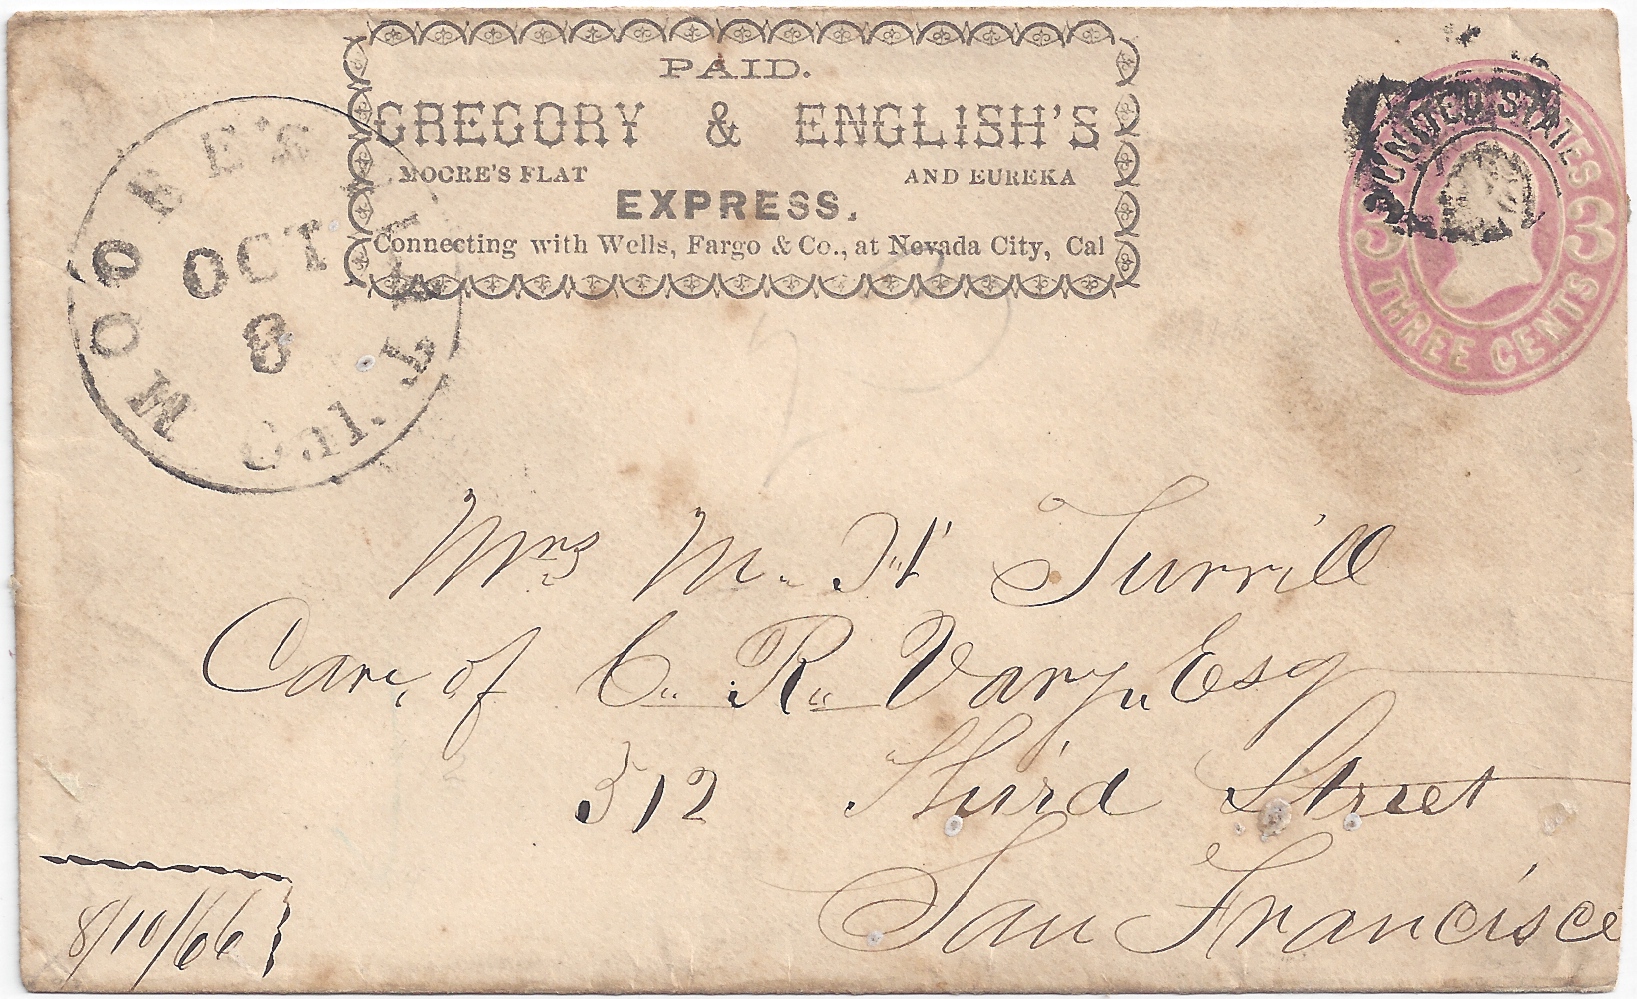 PAID.
GREGORY & ENGLISH'S
MOORE'S FLAT AND EUREKA
EXPRESS.
Connecting with Wells, Fargo & Co., at Nevada City, Cal
MOORE'S FLAT
OCT
8
Cal.
UNITED STATES
3 3
THREE CENTS
Mrs M. H. Turrill
Care, of C. R. Vary, Esq
312 Third Street
San Francisco
8/10/66